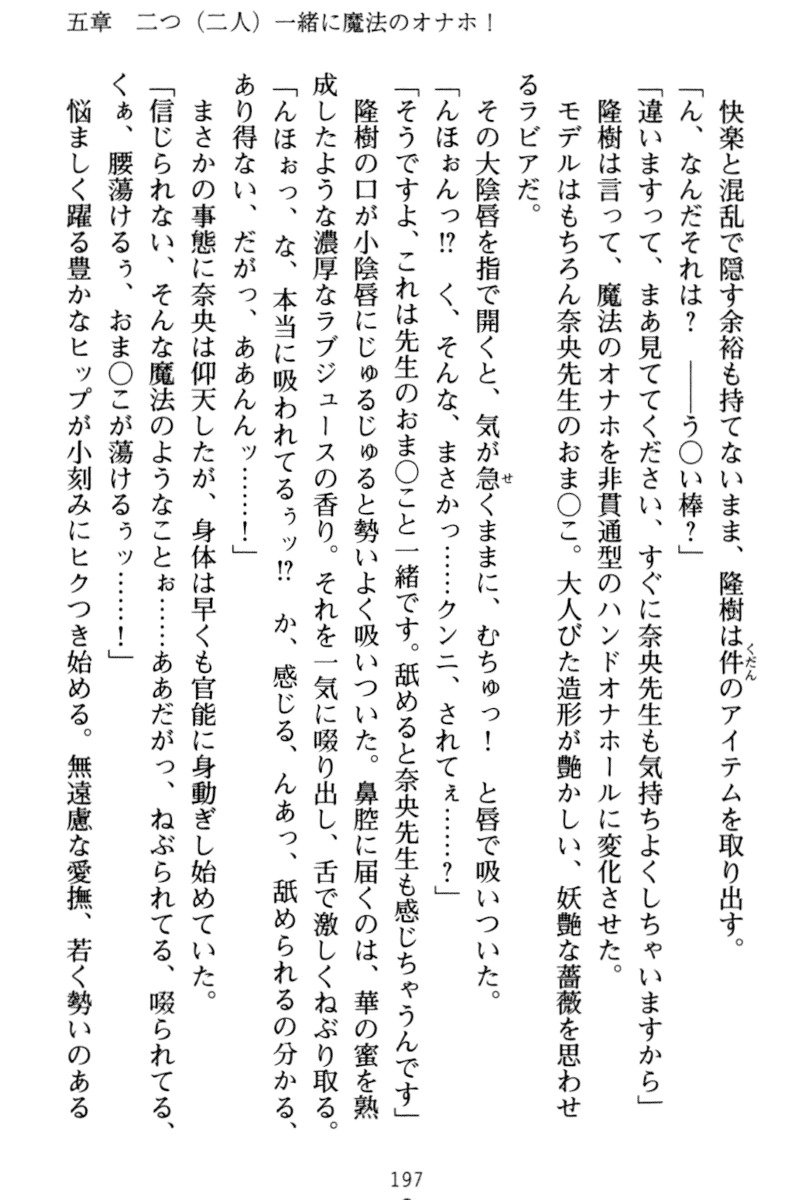 五章　二つ（二人）一緒に魔法のオナホ！
快楽と混乱で隠す余裕も持てないまま、隆樹は件のアイテムを取り出す。
「ん、なんだそれは？　――う〇い棒？」
「違いますって、まあ見ててください、すぐに奈央先生も気持ちよくしちゃいますから」
隆樹は言って、魔法のオナホを非貫通型のハンドオナホールに変化させた。
モデルはもちろん奈央先生のおま〇こ。大人びた造形が艶かしい、妖艶な薔薇を思わせ
るラビアだ。
その大陰唇を指で開くと、気が急くままに、むちゅっ！　と唇で吸いついた。
「んほぉんっ!?　く、そんな、まさかっ……クンニ、されてぇ……？」
「そうですよ、これは先生のおま〇こと一緒です。舐めると奈央先生も感じちゃうんです」
隆樹の口が小陰唇にじゅるじゅると勢いよく吸いついた。鼻腔に届くのは、華の蜜を熟
成したような濃厚なラブジュースの香り。それを一気に啜り出し、舌で激しくねぶり取る。
「んほぉっ、な、本当に吸われてるぅッ!?　か、感じる、んあっ、舐められるの分かる、
あり得ない、だがっ、ああんんッ……！」
まさかの事態に奈央は仰天したが、身体は早くも官能に身動ぎし始めていた。
「信じられない、そんな魔法のようなことぉ……ああだがっ、ねぶられてる、啜られてる、
くぁ、腰蕩けるぅ、おま〇こが蕩けるぅッ……！」
悩ましく躍る豊かなヒップが小刻みにヒクつき始める。無遠慮な愛撫、若く勢いのある
197